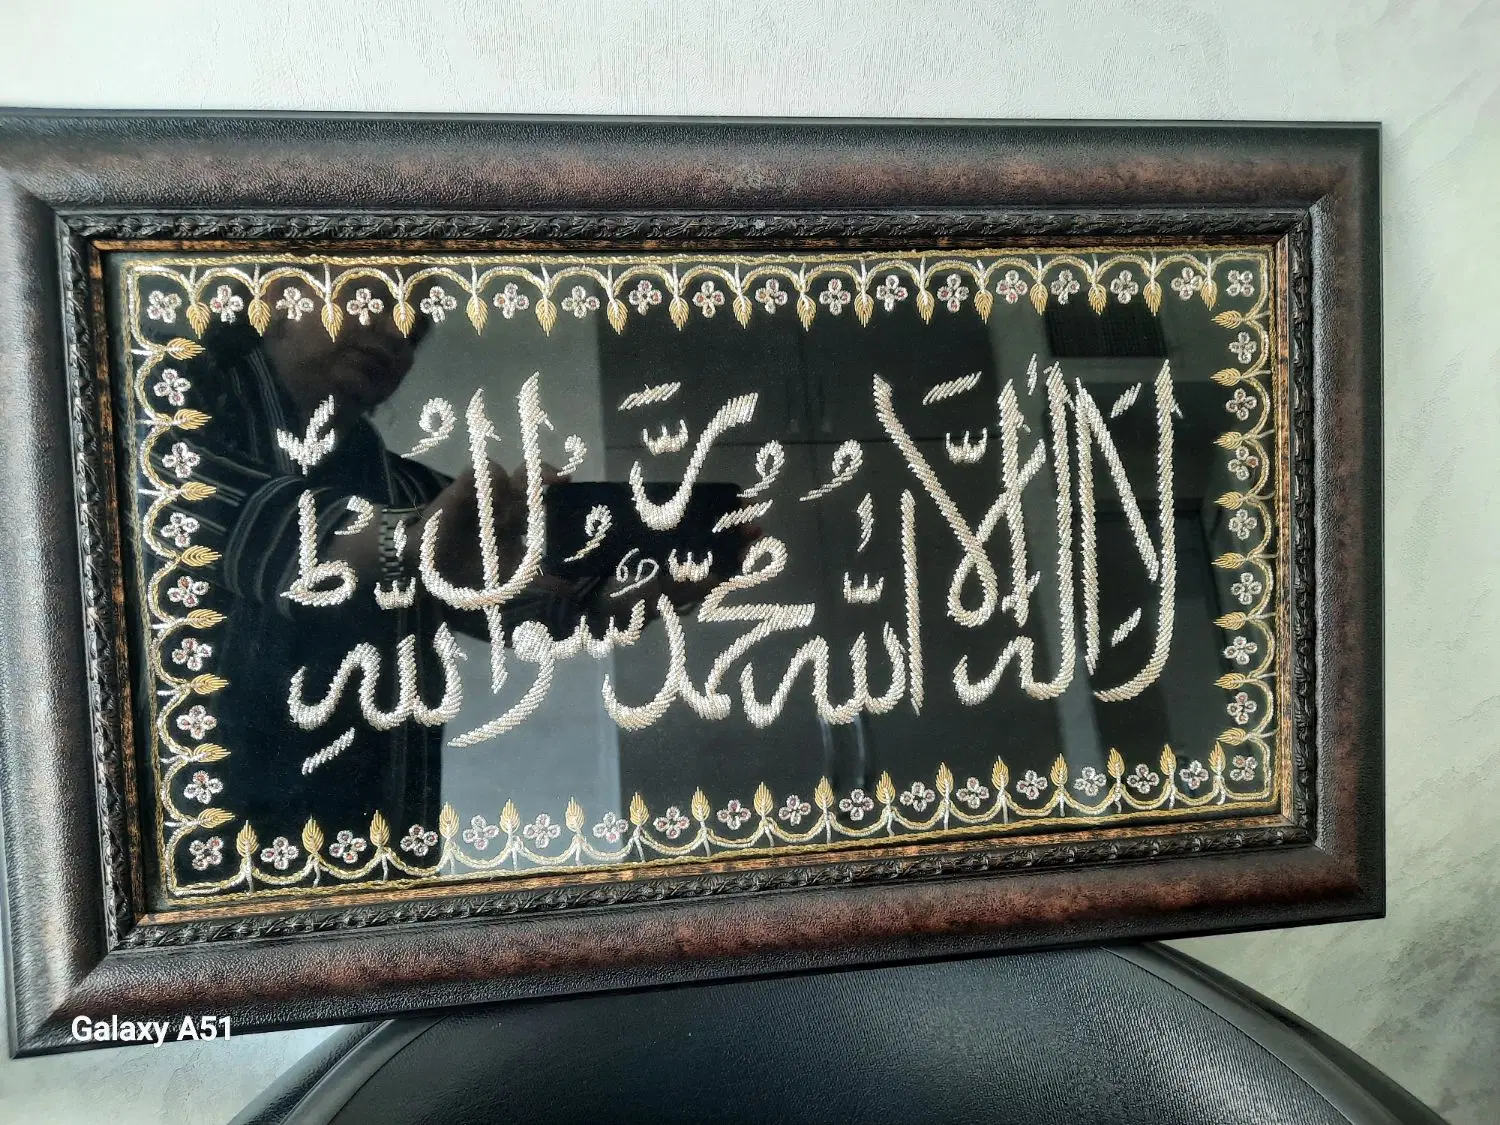 لَا إِلٰهَ إِلَّا اللّٰهُ مُحَمَّدٌ رَّسُوْلُ اللّٰهِ ط
Galaxy A51